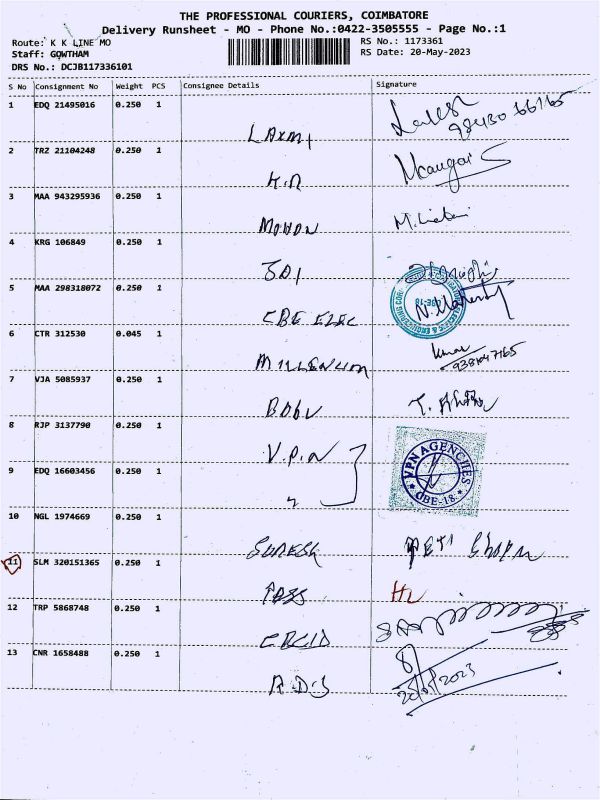 THE PROFESSIONAL COURIERS, COIMBATORE
Delivery Runsheet - MO - Phone No.:0422-3505555 - Page No.:1
Route: K K LINE MO
Staff: GOWTHAM
DRS No.: DCJB117336101
RS No.: 1173361
RS Date: 20-May-2023
S No Consignment No Weight PCS Consignee Details Signature
1 EDQ 21495016 0.250 1
LAxmi
2 TRZ 21104248 0.250 1
K.R
3 MAA 943295936 0.250 1
MOHON
4 KRG 106849 0.250 1
5 MAA 298318072 0.250 1
CBE ELEC
6 CTR 312530 0.045 1
MILLENUM
Kumar
9381047165
7 VJA 5085937 0.250 1
BObu
8 RJP 3137790 0.250 1
V.P.N
9 EDQ 16603456 0.250 1
VPN AGENCIES
CBE-18
10 NGL 1974669 0.250 1
SURESH
11 SLM 320151365 0.250 1
12 TRP 5868748 0.250 1
CBCID
13 CNR 1658488 0.250 1
R.D.S
20/05/2023